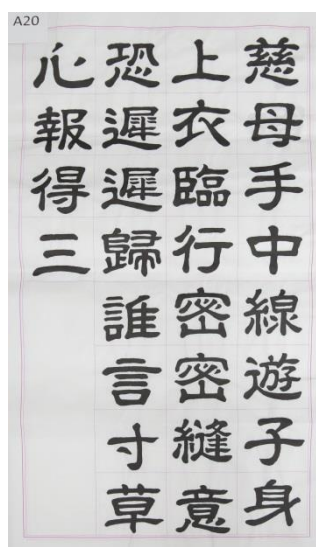 A20
慈母手中線遊子身
上衣臨行密密縫意
恐遲遲歸誰言寸草
心報得三